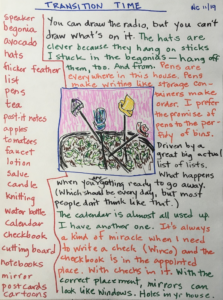 TRANSITION TIME
NC 11/9
speaker
begonia
avocado
hats
thicker feather
list
pens
tea
post-it notes
apples
tomatoes
faucet
lotion
salve
candle
knitting
water bottle
calendar
checkbook
cutting board
notebooks
mirror
postcards
cartoons
You can draw the radio, but you can't
draw what's on it. The hats are
clever because they hang on sticks
I stuck in the begonias — hang off
them, too. And from. Pens are
everywhere in this house. Pens
make writing like storage con-
tainers make
order. I prefer
the promise of
pens to the per
fidy of bins.
Driven by a
great big actual
list of lists.
What happens
when you're getting ready to go away?
(Which should be every day, but most
people don't think like that.)
The calendar is almost all used up.
I have another one. It's always
a kind of miracle when I need
to write a check (Vince) and the
checkbook is in the appointed
place. With checks in it. With the
correct placement, mirrors can
look like windows. Holes in your house